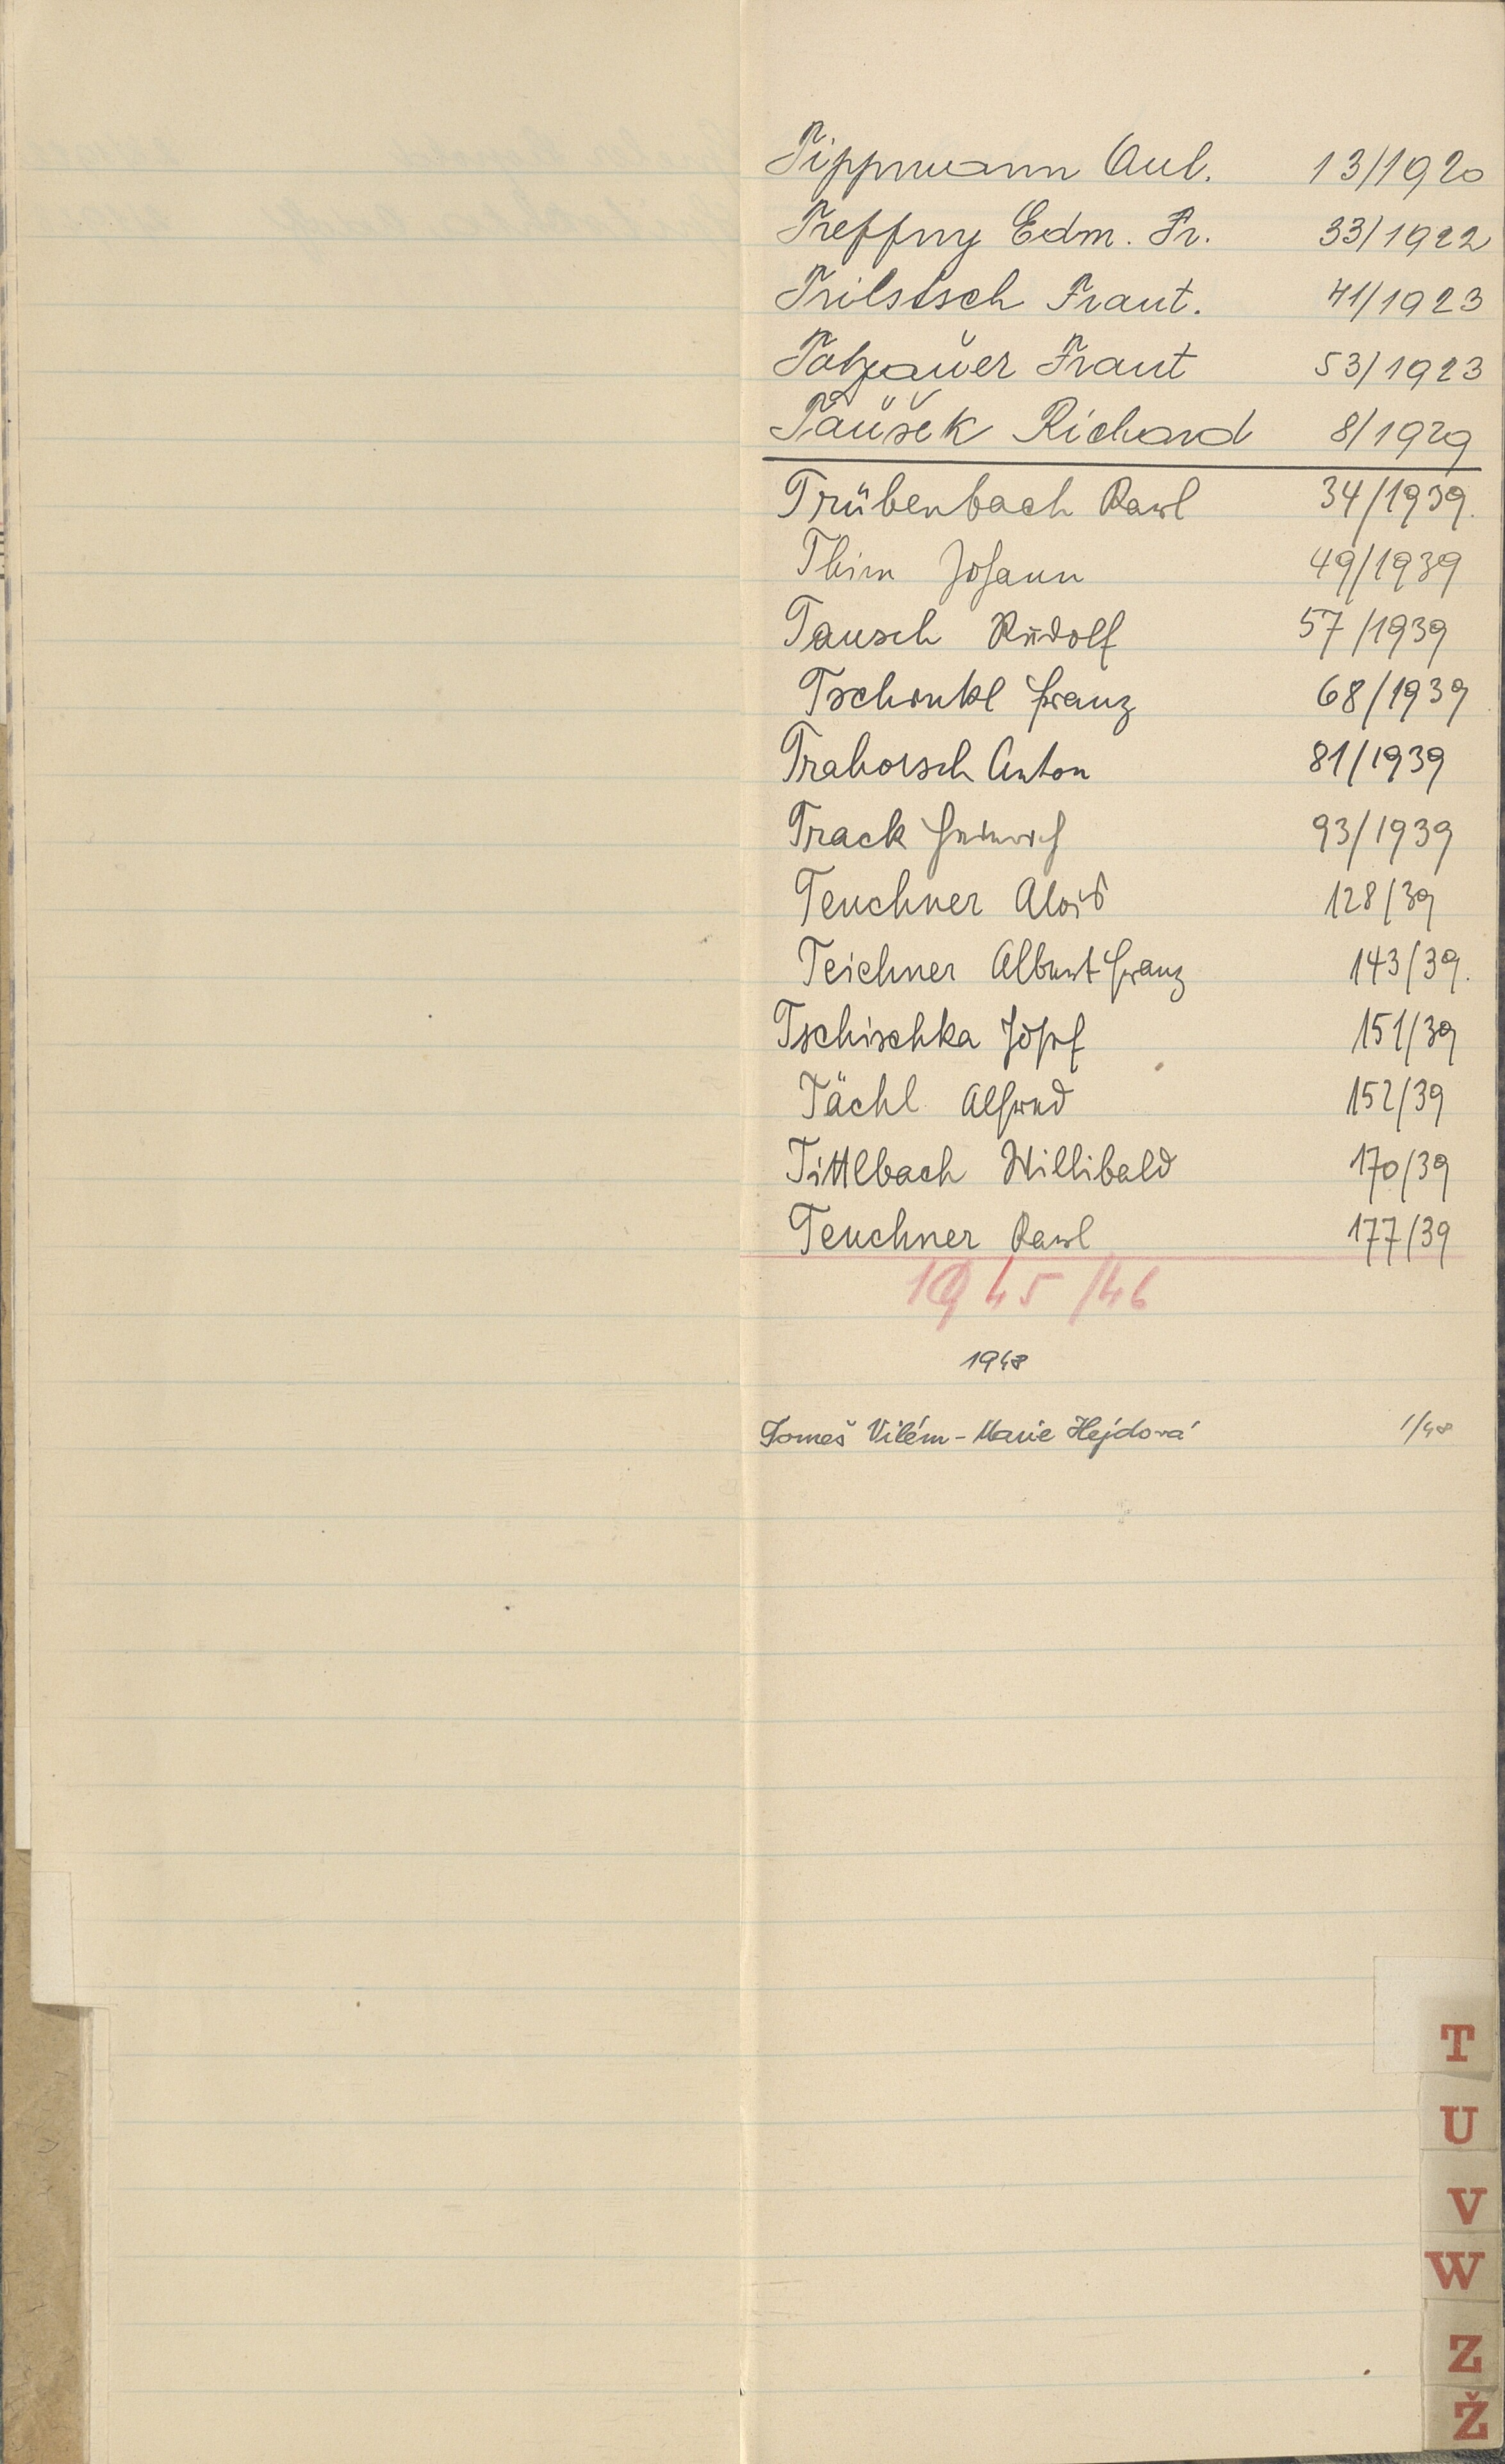 Tippmann Ant. 13/1920
Treffny Edm. Fr. 33/1922
Trilstsch Frant. 41/1923
Tatzauer Frant 53/1923
Taušek Richard 8/1929
Trübenbach Karl 34/1939.
Thim Johann 49/1939
Tausch Rudolf 57/1939
Tschinkl Franz 68/1939
Traborsch Anton 81/1939
Track Heinrich 93/1939
Teuchner Alois 128/39
Teichner Albert Franz 143/39.
Tschischka Josef 151/39
Tächl Alfred 152/39
Tittlbach Willibald 170/39
Teuchner Karl 177/39
1945/46
1948
Tomeš Vilém - Marie Hejdová 1/48
T
U
V
W
Z
Ž